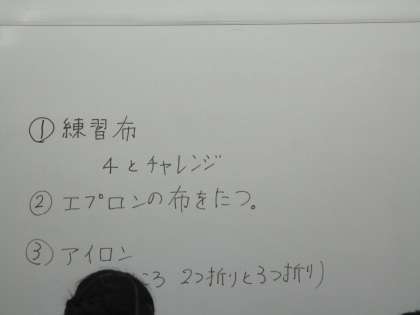 ① 練習布
4とチャレンジ
② エプロンの布をたつ。
③ アイロン
ころ 2つ折りと3つ折り)